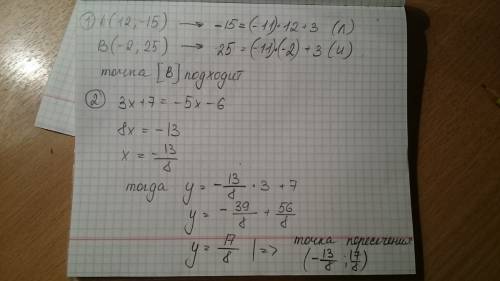 ① A(12, -15) → -15 = (-11)·12 + 3 (Л)
B(-2, 25) → 25 = (-11)·(-2) + 3 (И)
точка [B] подходит
② 3x + 7 = -5x - 6
8x = -13
x = -13/8
тогда y = -13/8 · 3 + 7
y = -39/8 + 56/8
y = 17/8 | => точка пересечения
(-13/8 ; 17/8)